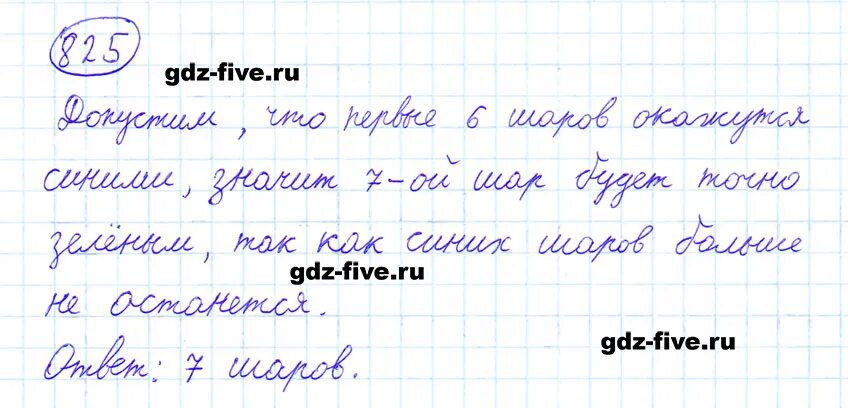 825
gdz-five.ru
Допустим, что первые 6 шаров окажутся
gdz-five.ru
синими, значит 7-ой шар будет точно
зелёным, так как синих шаров больше
gdz-five.ru
не останется.
gdz-five.ru
Ответ: 7 шаров.